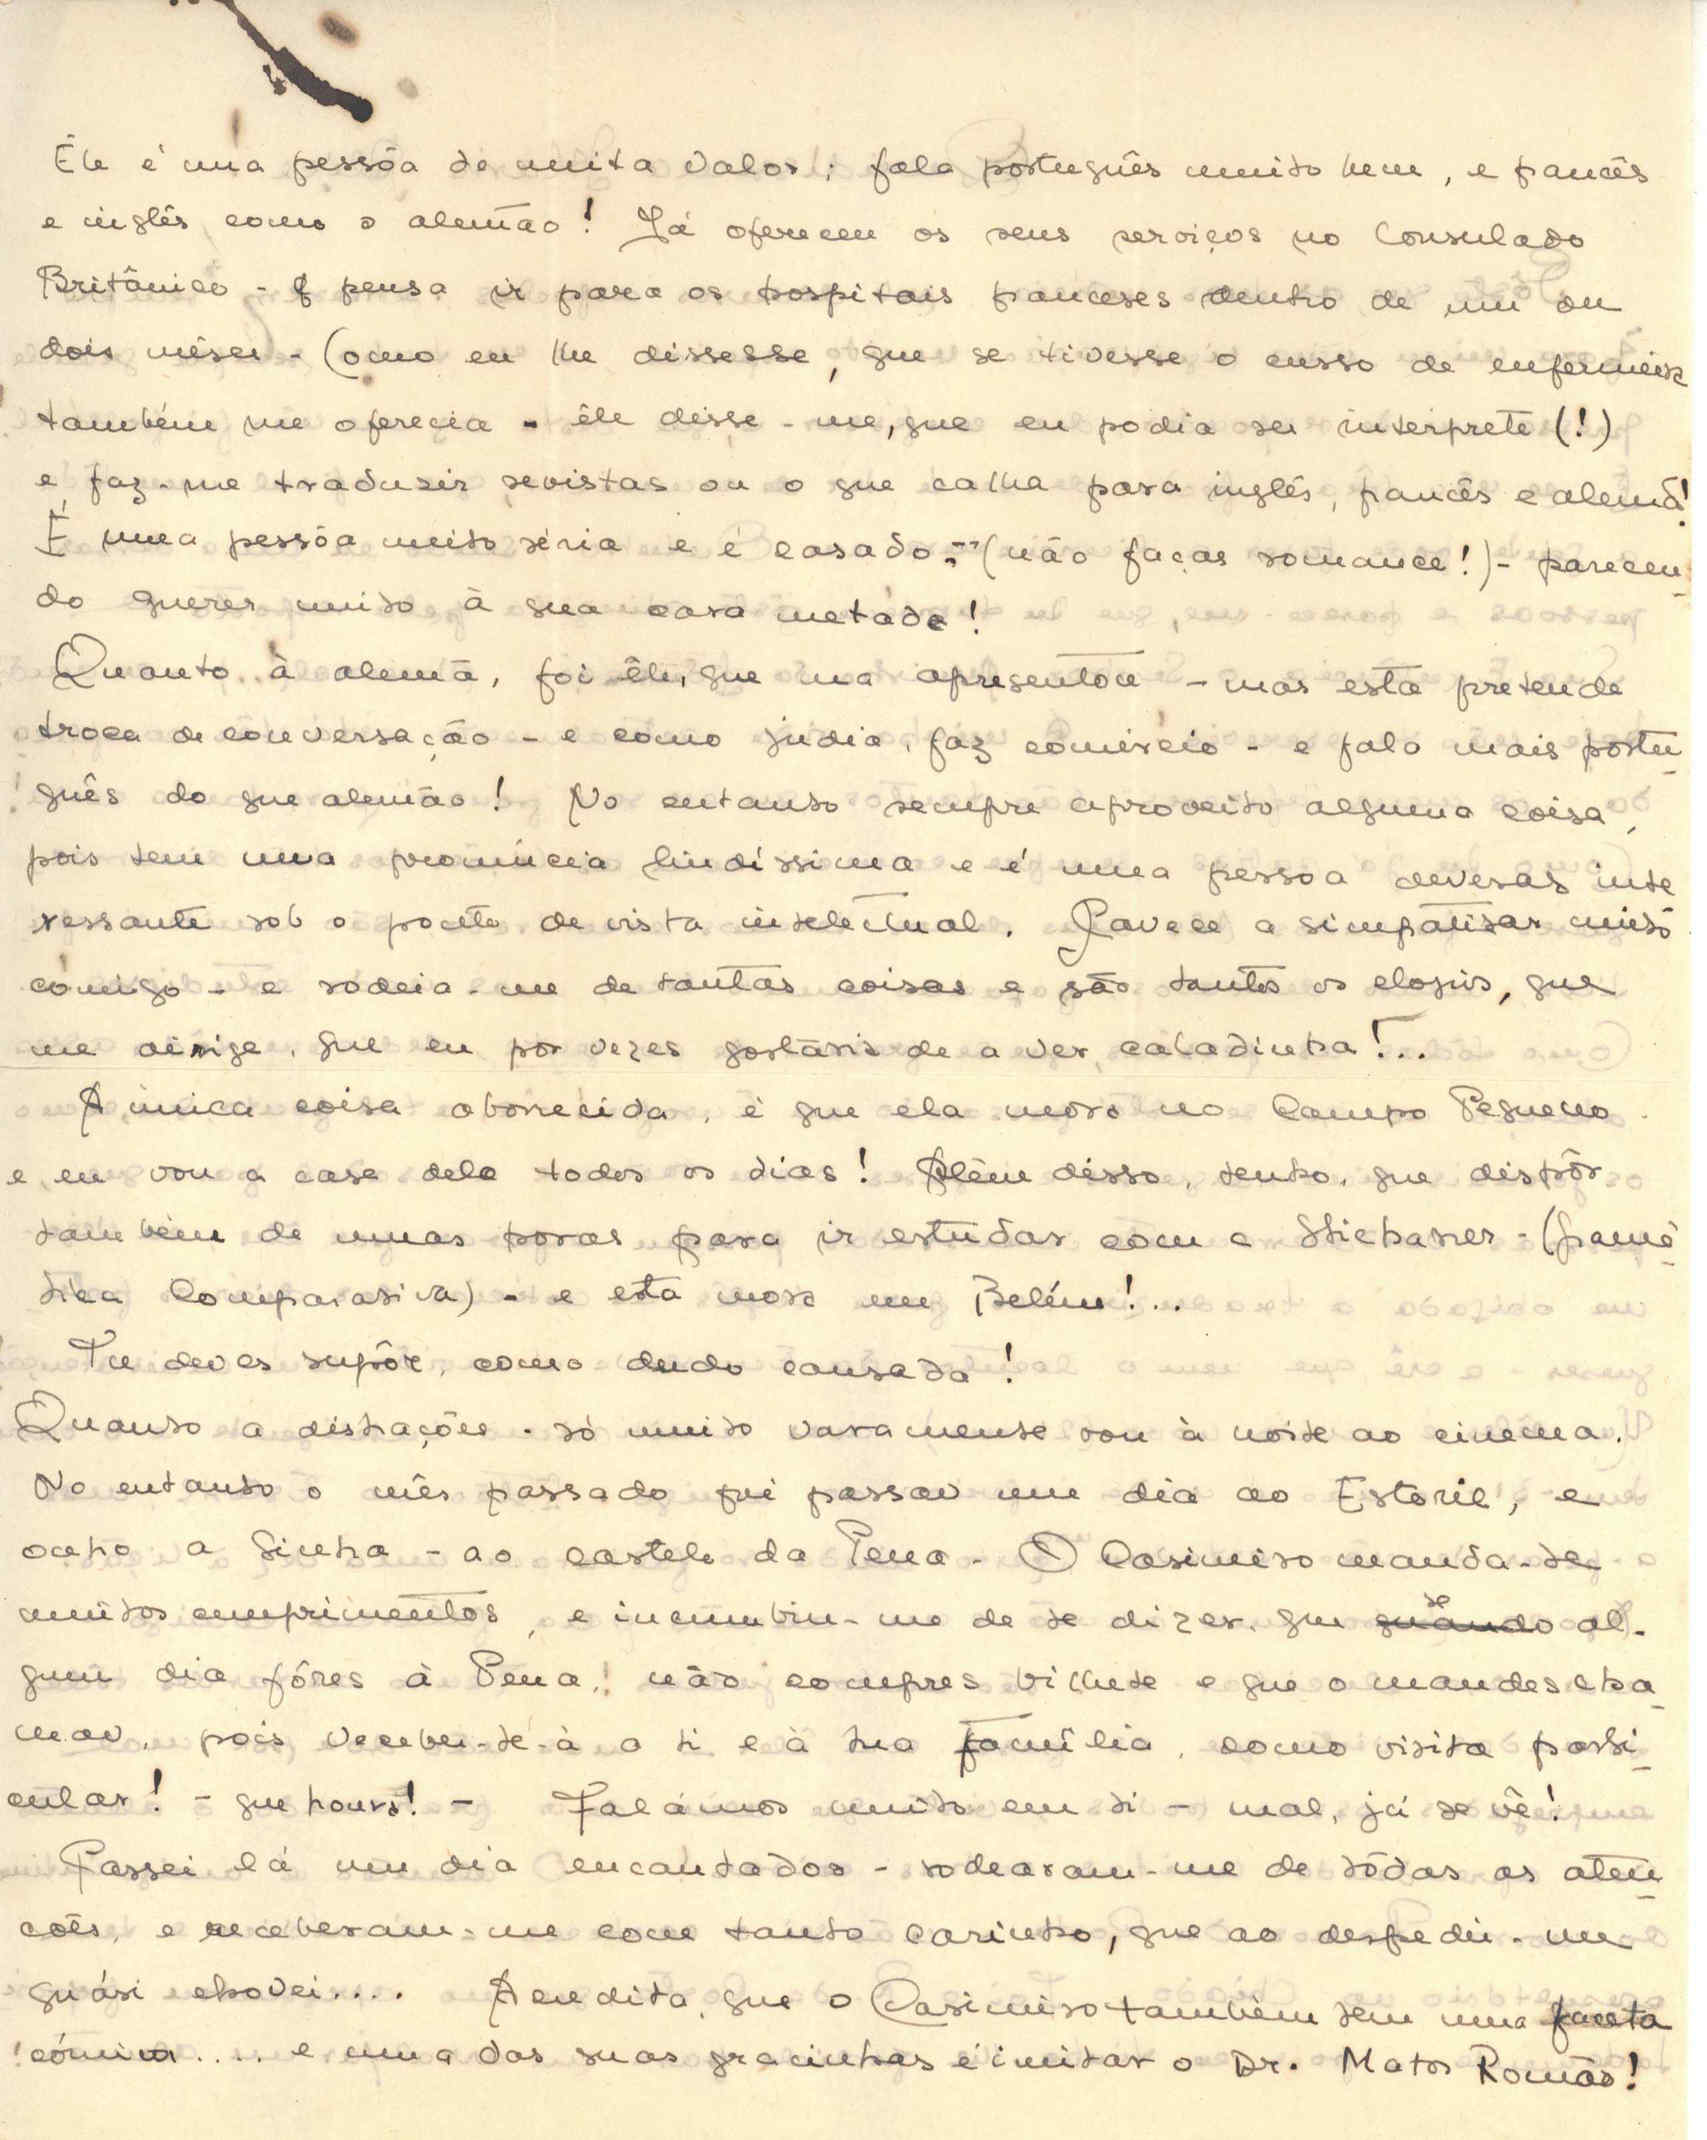 Êle é uma pessôa de muita valor; fala português muito bem, e francês
e inglês como o alemão! Já ofereceu os seus serviços no Consulado
Britânico - e pensa ir para os hospitais franceses dentro de um ou
dois mêses - Como eu lhe dissesse, que se tivesse o curso de enfermeira
também me oferecia - êle disse-me, que eu podia ser interprete (!)
e, faz-me traduzir revistas ou o que calha para inglês, francês e alemão!
É uma pessôa muito séria e é casado - (não faças romance!) - parecen-
do querer muito à sua cara metade!
Quanto à alemã, foi êle, que ma apresentou - mas esta pretende
troca de conversação - e como judia, faz comércio - e fala mais portu-
guês do que alemão! No entanto sempre aproveito alguma coisa,
pois tem uma pronúncia lindíssima e é uma pessoa deveras inte
ressante sob o ponto de vista intelectual. Parece a simpatisar muito
comigo - e rodeia-me de tantas coisas e são tantos os elogios, que
me dirige, que eu por vezes gostaria de a ver caladinha!..
A única coisa aborrecida, é que ela mora no Campo Pequeno
e eu vou a casa dela todos os dias! Além disso, tenho, que dispôr
também de umas horas para ir estudar com a Stichaner - (gramá-
tica Comparativa) - e esta mora em Belém!...
Tu deves supôr, como ando cansada!
Quanto a distrações - só muito raramente vou à noite ao cinema.
No entanto o mês passado fui passar um dia ao Estoril, e
outro a Sintra - ao castelo da Pena - O Casimiro manda-te
muitos cumprimentos, e incumbiu-me de te dizer, que quando se al-
gum dia fôres à Pena, não compres bilhete e que o mandes cha-
mar, pois receber-te-á a ti e à tua família, como visita parti-
cular! - que honra! - Falámos muito em ti - mal, já se vê!
Passei lá um dia encantador - rodearam-me de tôdas as aten-
ções, e receberam-me com tanto carinho, que ao despedir-me
quási chorei.... Acredita, que o Casimiro também tem uma faceta
cómica .... e uma das suas gracinhas é imitar o Dr. Matos Romão!